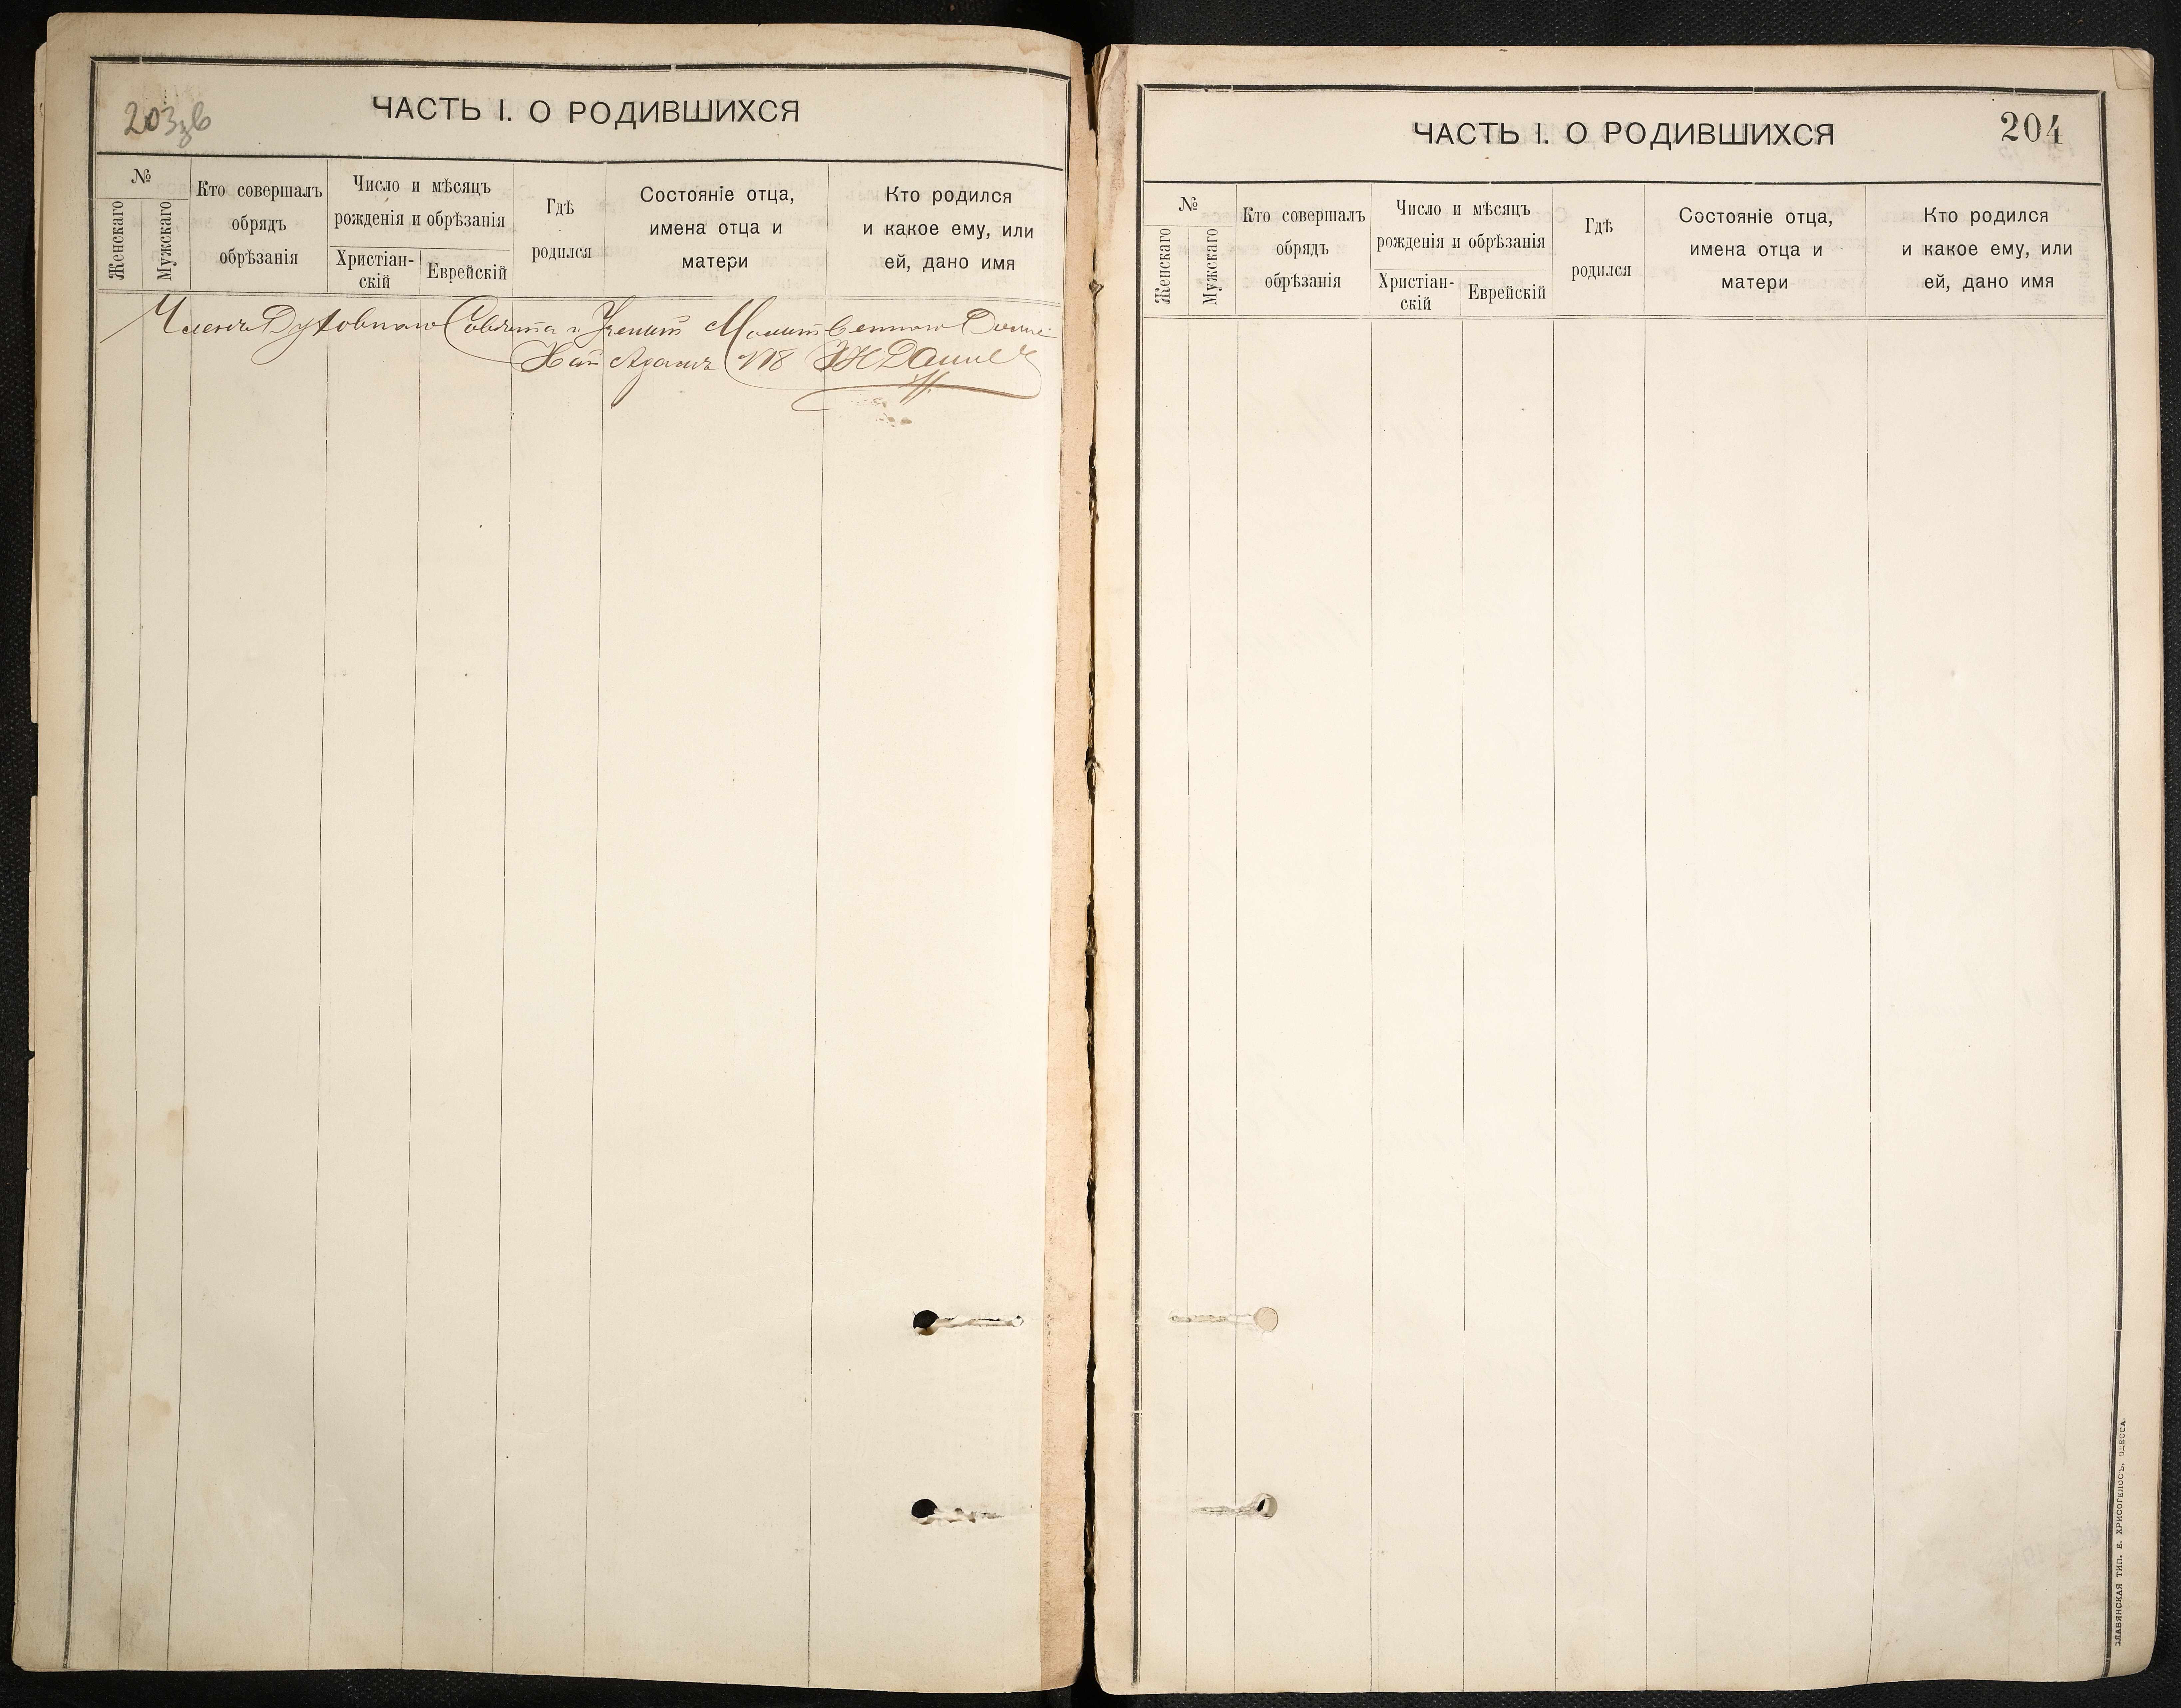 203зв
ЧАСТЬ I. О РОДИВШИХСЯ
№
Женскаго
Мужскаго
Кто совершалъ
обрядъ
обрѣзанія
Число и мѣсяцъ
рожденія и обрѣзанія
Христіан-
скій
Еврейскій
Гдѣ
родился
Состояніе отца,
имена отца и
матери
Кто родился
и какое ему, или
ей, дано имя
Членъ Духовнаго Совѣта и Ученый Молитвеннаго Дома
204
ЧАСТЬ I. О РОДИВШИХСЯ
№
Женскаго
Мужскаго
Кто совершалъ
обрядъ
обрѣзанія
Число и мѣсяцъ
рожденія и обрѣзанія
Христіан-
скій
Еврейскій
Гдѣ
родился
Состояніе отца,
имена отца и
матери
Кто родился
и какое ему, или
ей, дано имя
СЛАВЯНСКАЯ ТИП. Е. ХРИСОГЕЛОСЪ, ОДЕССА.